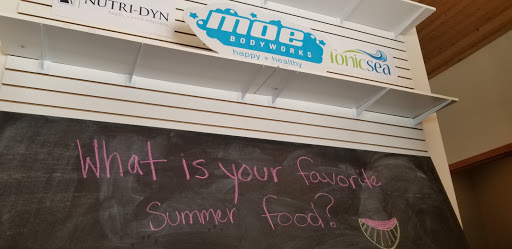 NUTRI-DYN
moe
BODYWORKS
happy + healthy
ionic sea
What is your favorite
Summer food?